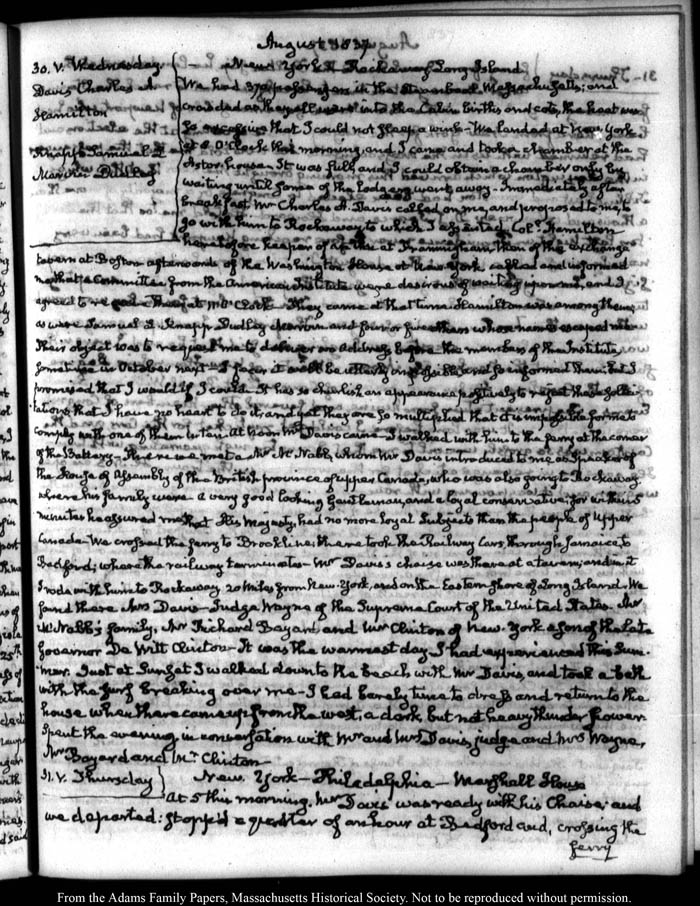 August 1837
30. V. Wednesday. New York & Rockaway Long Island
Davis Charles A
Hamilton
Knapp Samuel L
Marvin Dudley
We had 370 passengers in the Steamboat Massachusetts; and
crowded as they all were into the Cabin births and cots, the heat was
so excessive that I could not sleep a wink. We landed at New York
at 6 O'Clock this morning, and I came and took a chamber at the
Astor house. It was full and I could obtain a chamber only by
waiting until some of the lodgers went away. Immediately after
breakfast Mr Charles A. Davis called on me, and proposed to me to
go with him to Rockaway to which I assented. Coll. Hamilton
heretofore keeper of a house at Framingham then of the Exchange
tavern at Boston afterwards of the Washington House at New York called and informed
me that a Committee from the American Institute were desirous of waiting upon me, and I
agreed to see them at O'Clock. They came at that time. Hamilton was among them,
as were Samuel L. Knapp, Dudley Marvin and four or five others whose names escaped me
Their object was to request me to deliver an Address before the members of the Institute,
some time in October next. I fear it will be utterly impossible, and so informed them; but I
promised that I would if I could. It has so churlish an appearance positively to reject these solici-
tations that I have no heart to do it, and yet they are so multiplied that it is impossible for me to
comply with one of them in ten. At noon Mr Davis came. I walked with him to the ferry at the corner
of the Battery. There we met a Mr McNabb, whom Mr Davis introduced to me as Speaker of
the House of Assembly of the British province of upper Canada, who was also going to Rockaway.
where his family were. a very good looking Gentleman, and a loyal conservative; for within 5
minutes he assured me that His Majesty, had no more loyal Subjects than the people of Upper
Canada. We crossed the ferry to Brookline; there took the Railway Cars, through Jamaica, to
Bedford; where the railway terminates. Mr Davis's chaise was there at a tavern; and in it
I rode with him to Rockaway 20 miles from New-York, and on the Eastern shore of Long Island. We
found there Mrs Davis. Judge Wayne of the Supreme Court of the United States. Mr
McNabb's family, Mr Richard Bayard and Mr Clinton of New-York a son of the late
Governor De Witt Clinton. It was the warmest day I had experienced this Sum-
mer. Just at Sunset I walked down to the beach with Mr Davis, and took a bath
with the surf breaking over me. I had barely time to dress and return to the
house when there came up from the west, a dark but not heavy thunder shower.
Spent the evening in conversation with Mr and Mrs Davis, judge and Mrs Wayne,
Mr Bayard and Mr Clinton.
31. V. Thursday New York - Philadelphia - Marshall House
At 5 this morning, Mr Davis was ready with his Chaise: and
we departed: stopp'd a quarter of an hour at Bedford and, crossing the
ferry
From the Adams Family Papers, Massachusetts Historical Society. Not to be reproduced without permission.